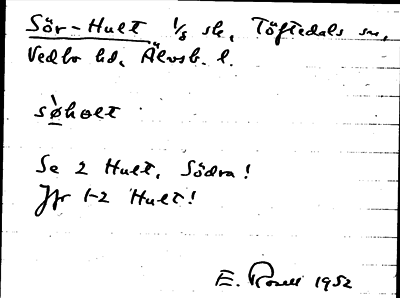 Sör-Hult 1/8 sk, Töftedals sn,
Vedbo hd, Älvsb. l.
sø̀hølt
Se 2 Hult, Södra!
Jfr 1-2 Hult!
E. Rosell 1952